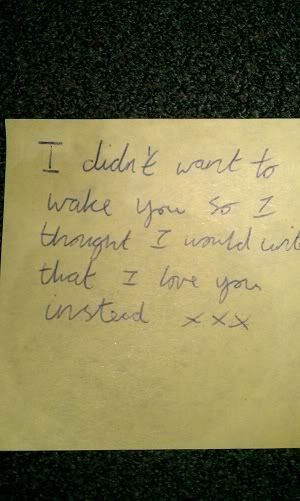 I didn't want to
wake you so I
thought I would writ
that I love you
instead xxx